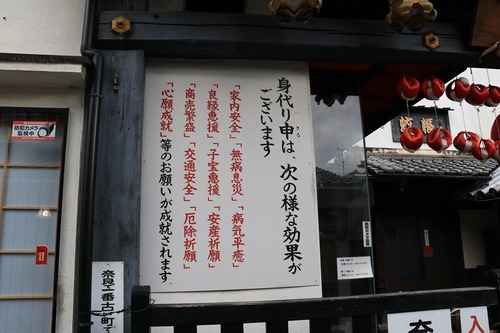 身代り申は、次の様な効果が
さる
ございます
「家内安全」「無病息災」「病気平癒」
「良縁恵援」「子宝恵援」「安産祈願」
「商売繁盛」「交通安全」「厄除祈願」
「心願成就」等のお願いが成就されます。
防犯カメラ
監視中
奈良
入